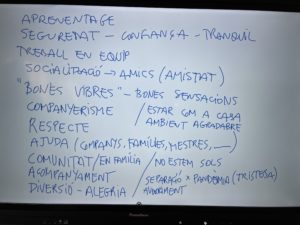 APRENENTAGE
SEGURETAT - CONFIANÇA - TRANQUIL
TREBALL EN EQUIP
SOCIALITZACIÓ → AMICS (AMISTAT)
"BONES VIBRES" - BONES SENSACIONS
COMPANYERISME / ESTAR COM A CASA
AMBIENT AGRADABLE
RESPECTE
AJUDA (COMPANYS, FAMÍLIES, MESTRES, ...)
COMUNITAT / EN FAMÍLIA / NO ESTEM SOLS
ACOMPANYAMENT / SEPARACIÓ × PANDÈMIA (TRISTESA)
DIVERSIÓ - ALEGRIA / AVORRIMENT